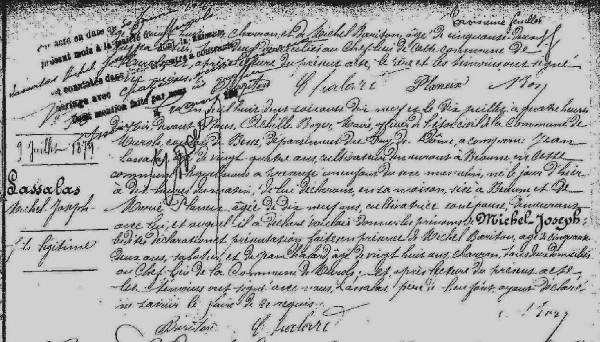 Troisième feuillet
charron, et de Michel Bariton, âgé de cinquante deux
au Chef lieu de cette commune de
du présent acte, le père et les témoins ont signé
Bariton Chalard Planeix Boy
L'an mil huit cent soixante dix neuf et le dix juillet, à quatre heures
du soir, devant Nous, Achille Boyer, Maire, officier de l'état civil de la Commune de
Murols, canton de Besse, département du Puy de Dôme, a comparu Jean
Lassalas âgé de vingt quatre ans, cultivateur demeurant à Beaune en cette
commune lequel nous a présenté un enfant du sexe masculin, né le jour d'hier
à dix heures du matin, de lui déclarant en sa maison, sise à Beaune et de
Marie Planeix âgée de dix neuf ans, cultivatrice son épouse, demeurant
avec lui, et auquel il a déclaré vouloir donner les prénoms de Michel Joseph;
les dites déclaration et présentation faites en présence de Michel Bariton, âgé de cinquante
deux ans, et de Jean Chalard, âgé de vingt huit ans, charron, tous deux domiciliés
au Chef lieu de la Commune de Murols; et après lecture du présent acte
les témoins ont signé avec nous, Lassalas, père de l'enfant, ayant déclaré
ne savoir le faire de ce requis.
Bariton Chalard
9 Juillet 1879
Lassalas
Michel Joseph
fils légitime